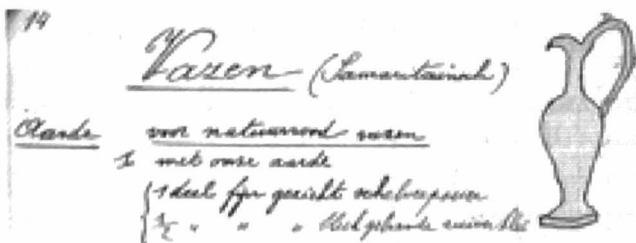 14
Vazen (Samaritainsch)
Aarde voor natuurrood vazen
1 met onze aarde
1 deel fijn gezicht
1/2 " " "